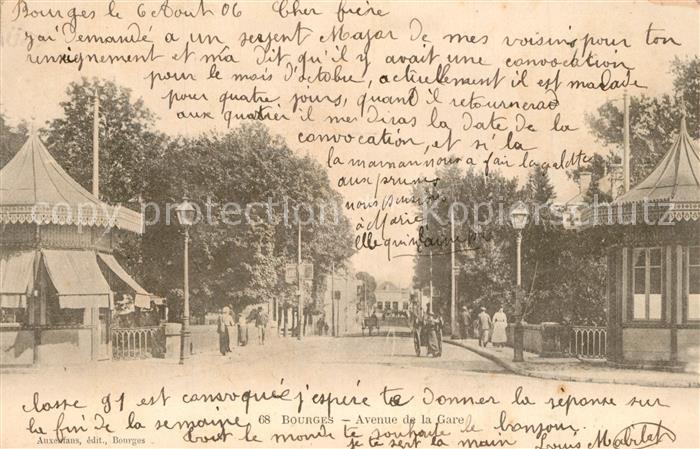 Bourges le 6 Aout 06 Cher frère
j'ai Demandé a un serjent Major de mes voisins pour ton
renseignement et m'a Dit qu'il y avait une convocation
pour le mois D'octobre, actuellement il est malade
pour quatre jours, quant il retournerad
aux quartier il me diras la date de la
convocation, et si la
la maman nous a fair la galette
aux prunes
nous pensions
à Marie
elle qui n'aime
copyright protection Kopierschutz
classe 91 est convoquée j'espére te donner la réponse sur
la fin de la semaine
68 BOURGES – Avenue de la Gare
tout le monde te souhaite le bonjour
Auxenfans, édit., Bourges
je te sert la main Louis